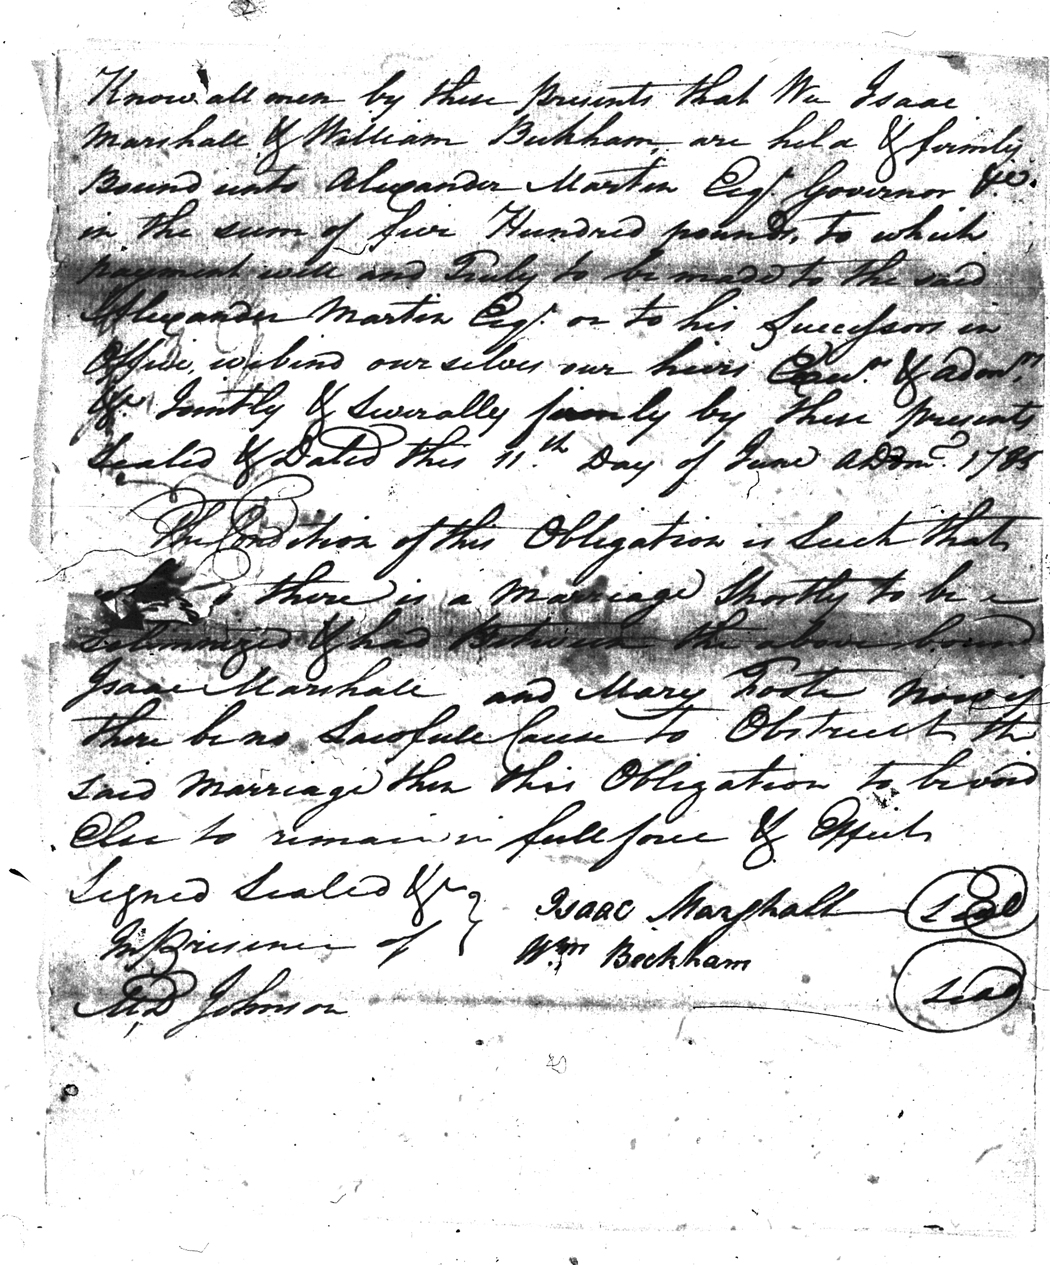 Know all men by these presents that We Isaac
Marshall & William Beckham are held & firmly
Bound unto Alexander Martin Esqr. Governor &c.
in the sum of five Hundred pounds, to which
payment well and Truly to be made to the said
Alexander Martin Esqr. or to his Successors in
Office, we bind ourselves our heirs Exaw.rs & adom.rs
&c Jointly & Severally firmly by these presents
Sealed & Dated this 11.th Day of June ADom.o 1785
The Condition of this Obligation is Such that
there is a Marriage Shortly to be
solemnized & had Between the above bound
Isaac Marshall and Mary Foote Now if
there be no Lawfull Cause to Obstruct the
said Marriage then this Obligation to be void
Else to remain in full force & Effect
Signed Sealed &c
In Presence of
Isaac Marshall Seal
Wm Beckham Seal
Johnson